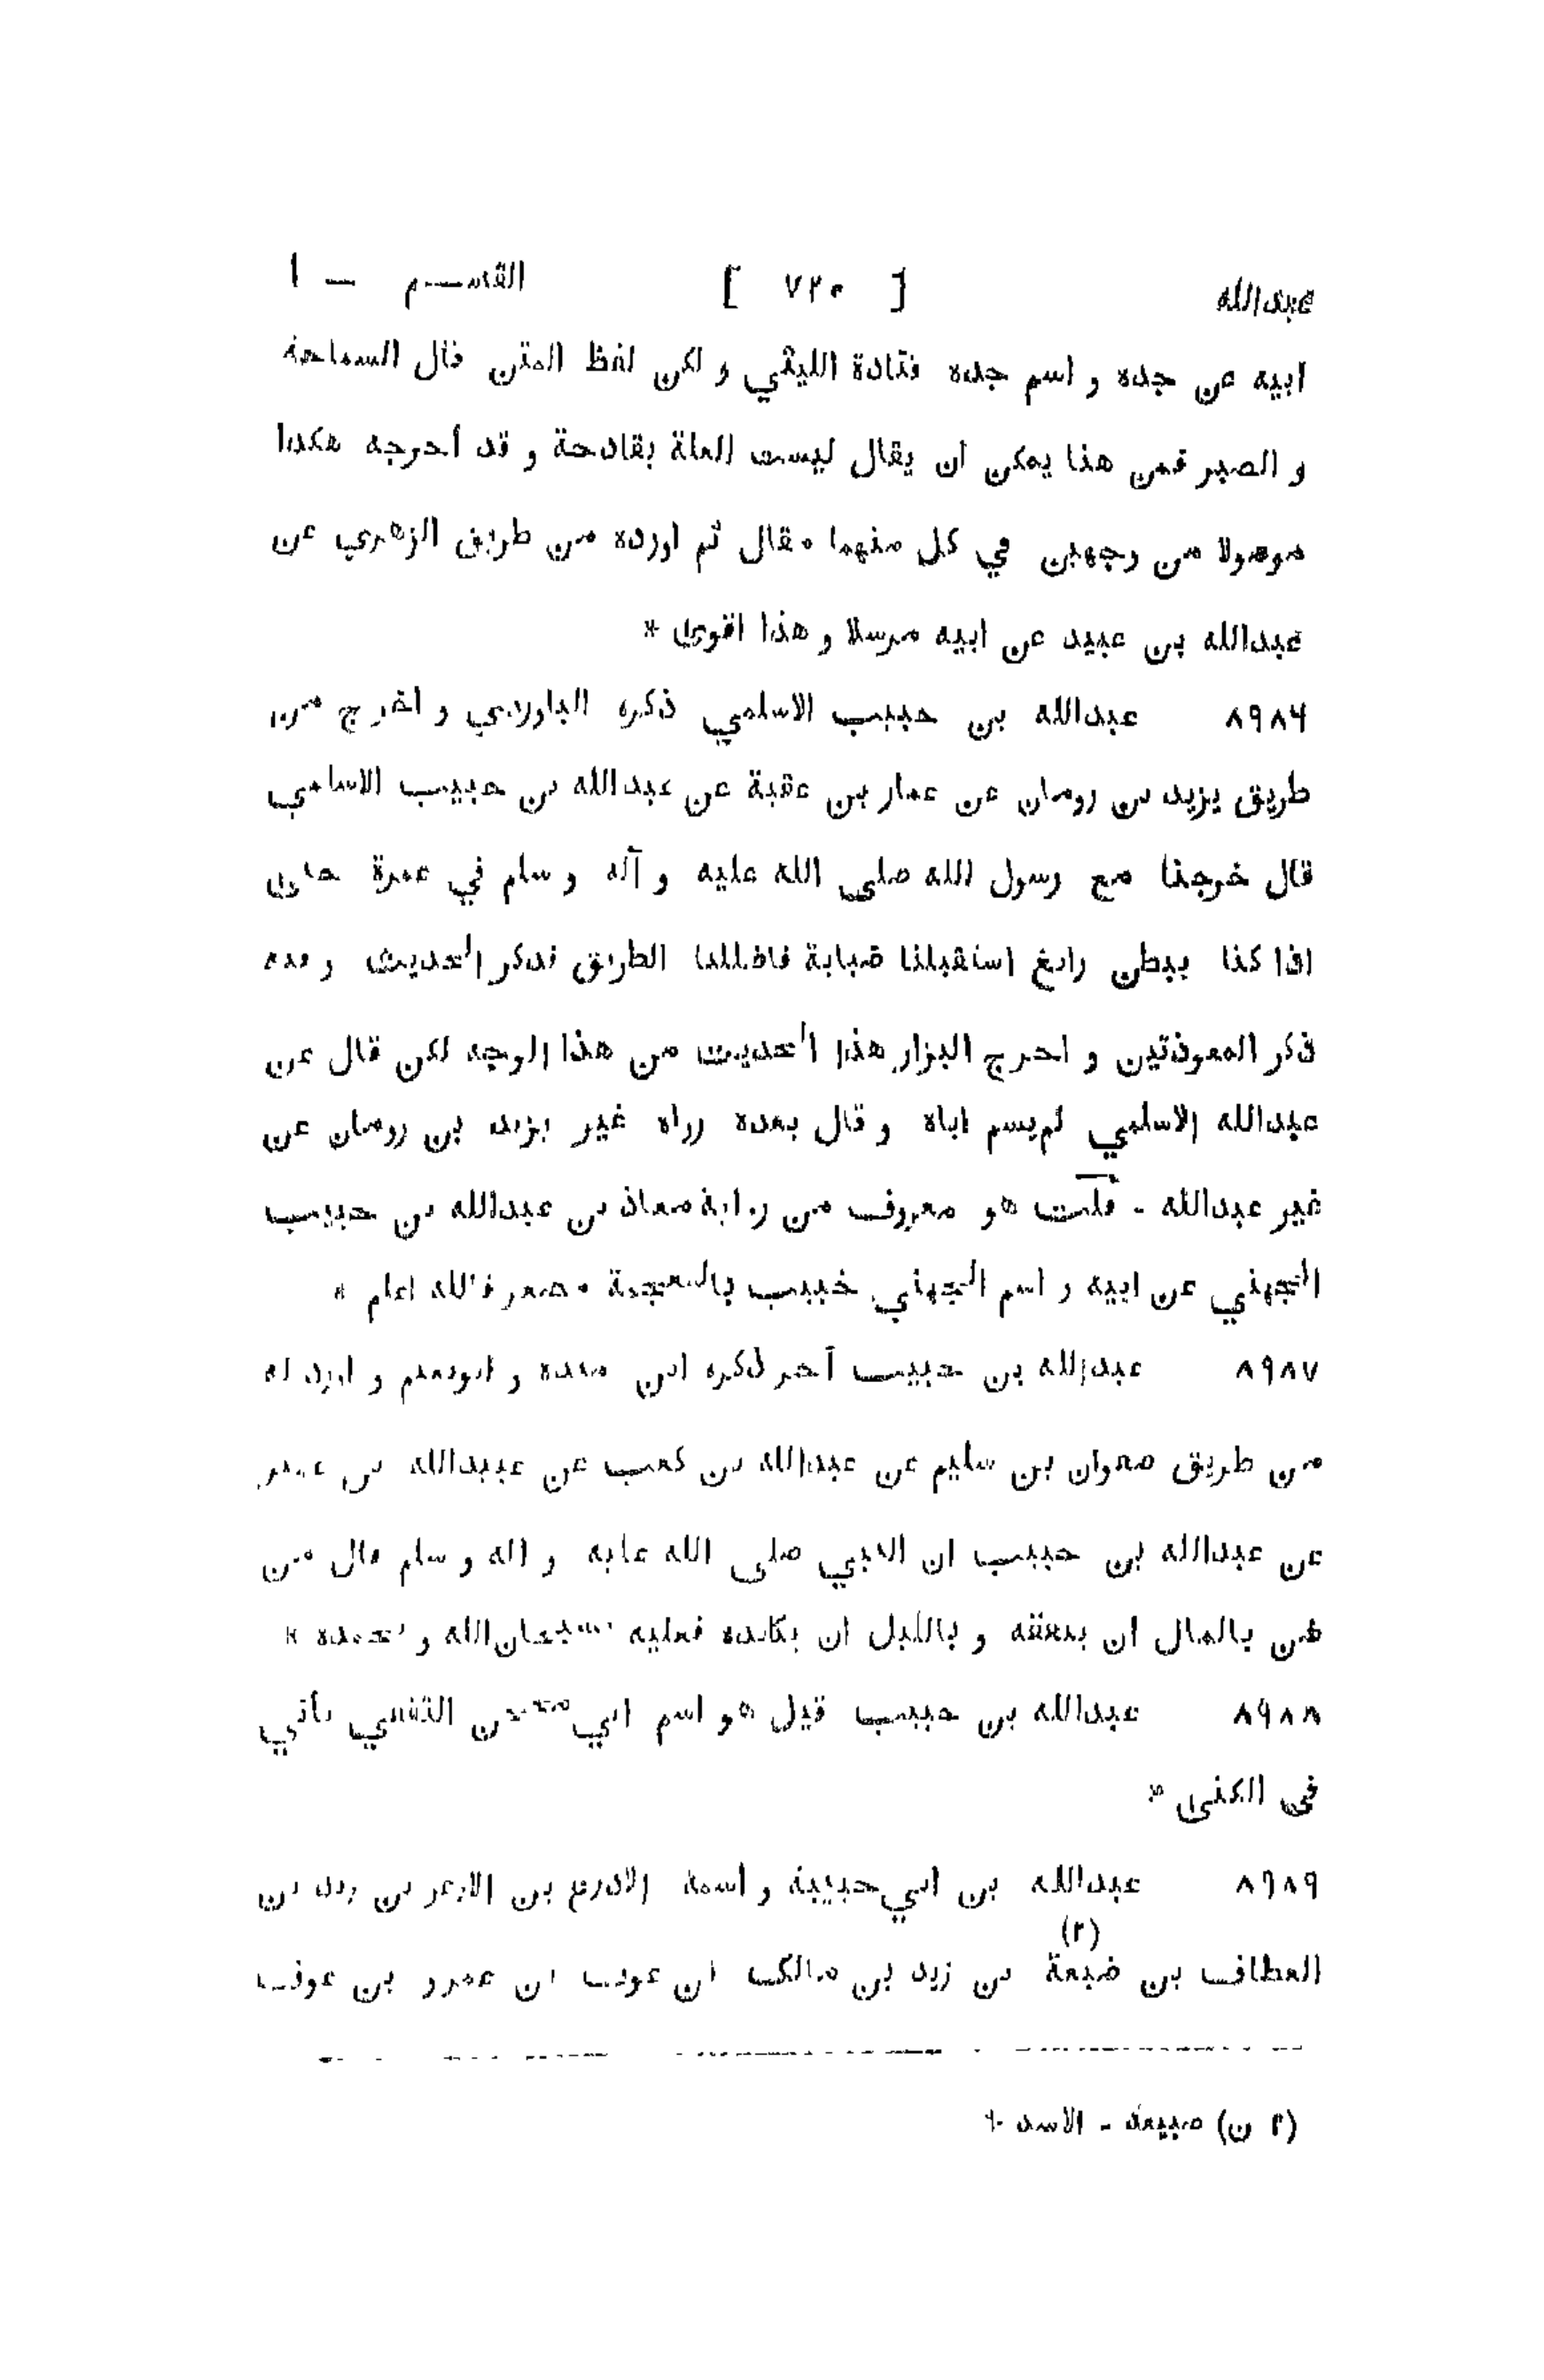 عبدالله [ ٧٢٠ ] القسم — ا
ابيه عن جده و اسم جده قتادة الليثي و لكن لفظ المتن قال السماحة
و الصبر فمن هذا يمكن ان يقال ليست العلة بقادحة و قد أخرجه هكذا
موصولا من وجهين في كل منهما مقال ثم اورده من طريق الزهري عن
عبدالله بن عبيد عن ابيه مرسلا و هذا اقوى *
٨٩٨٦ عبدالله بن حبيب الاسلمي ذكره الباوردي و اخرج من
طريق يزيد بن رومان عن عمار بن عقبة عن عبدالله بن حبيب الاسلمي
قال خرجنا مع رسول الله صلى الله عليه و آله و سلم في عمرة حتى
اذا كنا ببطن رابغ استقبلنا ضبابة فاضللنا الطريق فذكر الحديث و فيه
ذكر المعوذتين و اخرج البزار هذا الحديث من هذا الوجه لكن قال عن
عبدالله الاسلمي لم يسم اباه و قال بعده رواه غير يزيد بن رومان عن
غير عبدالله - قلت هو معروف من رواية معاذ بن عبدالله بن خبيب
الجهني عن ابيه و اسم الجهني خبيب بالمعجمة مصغر فالله اعلم *
٨٩٨٧ عبدالله بن حبيب آخر ذكره ابن منده و ابونعيم و اورد له
من طريق صفوان بن سليم عن عبدالله بن كعب عن عبيدالله بن عمير
عن عبدالله بن حبيب ان النبي صلى الله عليه و اله و سلم قال من
ضن بالمال ان ينفقه و بالليل ان يكابده فعليه بسبحان الله و بحمده *
٨٩٨٨ عبدالله بن حبيب قيل هو اسم ابي محجن الثقفي يأتي
في الكنى *
٨٩٨٩ عبدالله بن ابي حبيبة و اسمه الادرع بن الازعر بن زيد بن
العطاف بن ضبعة (٢) بن زيد بن مالك بن عوف بن عمرو بن عوف
(٢ ن) صبيعة - الاسد *